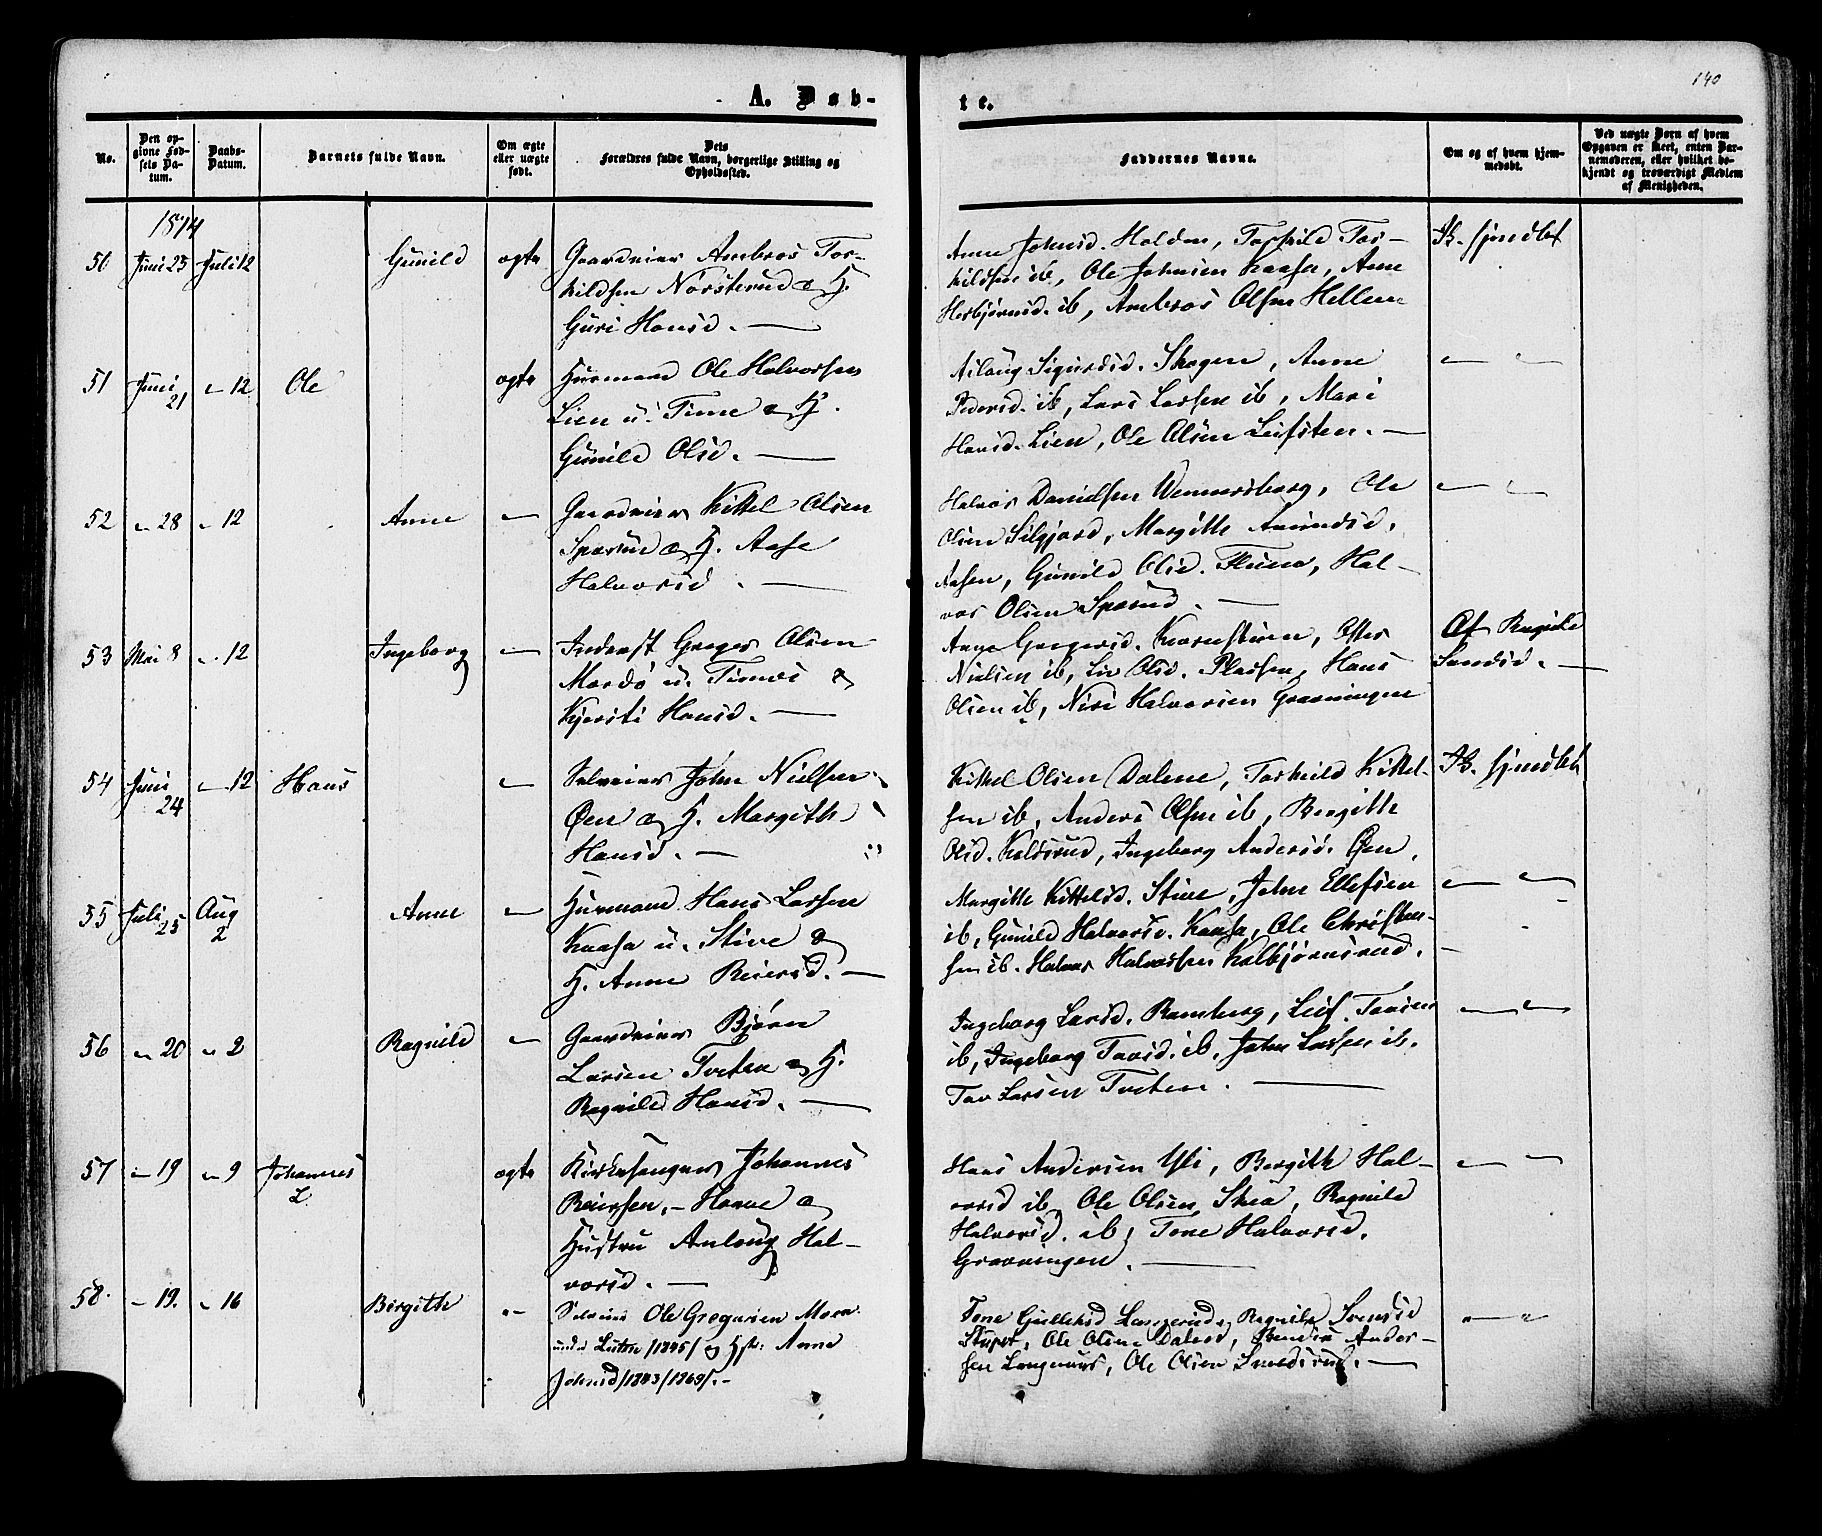 A. Døb-
te.
140
No.
Den op-
givne Fød-
sels Da-
tum.
Daabs-
Datum.
Barnets fulde Navn.
Om ægte
eller uægte
født.
Dets
Forældres fulde Navn, borgerlige Stilling og
Opholdssted.
Faddernes Navne.
Om og af hvem hjem-
medøbt.
Ved uægte Børn af hvem
Opgaven er skeet, enten Bar-
nemoderen, eller hvilket be-
kjendt og troværdigt Medlem
af Menigheden.
1874
50 Juni 25 Juli 12 Gunild ægte Gaardeier Ambros Tor-
kildsen Norsterud & H.
Guri Hansd. —
Anne Johnsd. Holden, Torkild Tor-
kildsen ib, Ole Johnsen Kaasa, Anne
Herbjørnsd. ib, Ambros Olsen Hellen
Ik. hjmdbt
51 Juni 21 " 12 Ole ægte Husmand Ole Halvorsen
Lien u. Tinne & H.
Gunild Olsd. —
Aslaug Sigurdsd. Skogen, Anne
Pedersd. ib, Lars Larsen ib, Mari
Hansd. Lien, Ole Olsen Leifsten. —
" "
52 " 28 " 12 Anne " Gaardeier Kittel Olsen
Sparud & H. Aase
Halvorsd. —
Halvor Danielsen Wennersborg, Ole
Olsen Silgjord, Margith Amundsd.
Aasen, Gunild Olsd. Haval-
vor Olsen Sparud. —
" "
53 Mai 8 " 12 Ingeborg " Inderst Greger Olsen
Mordø u. Tinnes &
Kjersti Hansd. —
Anne Gregersd. Kornstuen,
Nielsen ib, Liv Olsd. Pladsen, Hans
Olsen ib, Niri Halvorsen Graaningen
Af Ragnild
Landsd. —
54 Juni 24 " 12 Hans " Selveier John Nielsen
Øen & H. Margith
Hansd. —
Kittel Olsen Dalene, Torkild Kittel-
sen ib, Anders Olsen ib, Bergith
Olsd. Kaldsrud, Ingeborg Andersd. Øen.
Ik. hjmdbt
55 Juli 25 Aug 2 Anne " Husmand Hans Larsen
Kaasa u. Stive &
H. Anne Reiersd. —
Margith Kittelsd. Stive, John Ellefsen
ib, Gunild Halvorsd. Kaasa, Ole Christen-
sen ib. Halvor Halvorsen Kolbjørnsrud. —
" "
56 " 20 " 2 Ragnild " Gaardeier Bjørn
Larsen Tveten & H.
Ragnild Hansd. —
Ingeborg Larsd. Ramberg, Leif Tovsen
ib, Ingeborg Tovsd. ib, John Larsen ib.
Tov Larsen Tveten. —
" "
57 " 19 " 9 Johannes
L.
ægte Kirkesanger Johannes
Reiersen, - Hove &
Hustru Anlaug Hal-
vorsd. —
Hans Andersen Yli, Bergith Hal-
vorsd ib, Ole Olsen Skea, Ragnild
Halvorsd. ib, Tone Halvorsd.
Graaningen. —
" "
58. " 19. " 16 Birgith " Selveier Ole Gregersen Moen
under Lutna /1845/ og Hst: Anne
Johnsd /1843/1869/. -
Tone Gullieksd Langerud, Ragnild Svensd
Stuset, Ole Olsen Dalset, Ander-
sen Langenæs, Ole Olsen Smedsrud. —
" "